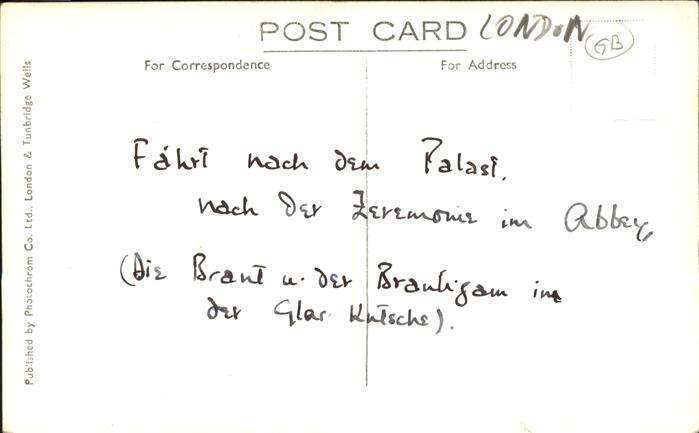 POST CARD LONDON
GB
For Correspondence
For Address
Fährt nach dem Palast.
nach der Zeremonie im Abbey,
(die Braut u. der Bräutigam in
der Glas Kutsche).
Published by Photochrom Co. Ltd., London & Tunbridge Wells